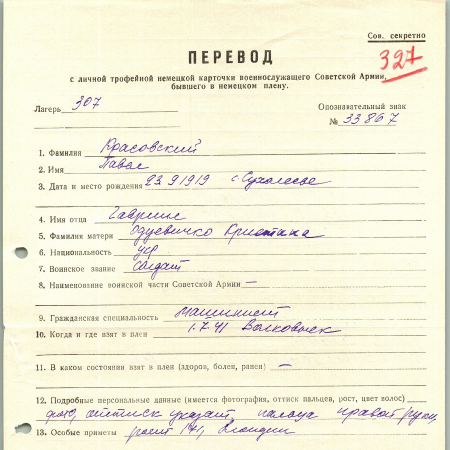 Сов. секретно
327
ПЕРЕВОД
с личной трофейной немецкой карточки военнослужащего Советской Армии,
бывшего в немецком плену.
Лагерь 307
Опознавательный знак
№ 33867
1. Фамилия Красовский
2. Имя Павел
3. Дата и место рождения 23.9.1919 с. Сухолесье
4. Имя отца
5. Фамилия матери Кристина
6. Национальность укр
7. Воинское звание солдат
8. Наименование воинской части Советской Армии —
9. Гражданская специальность машинист
10. Когда и где взят в плен 1.7.41 Волковыск
11. В каком состоянии взят в плен (здоров, болен, ранен) —
12. Подробные персональные данные (имеется фотография, оттиск пальцев, рост, цвет волос)
фото, оттиск указат. пальца правой руки,
13. Особые приметы рост 171, блондин